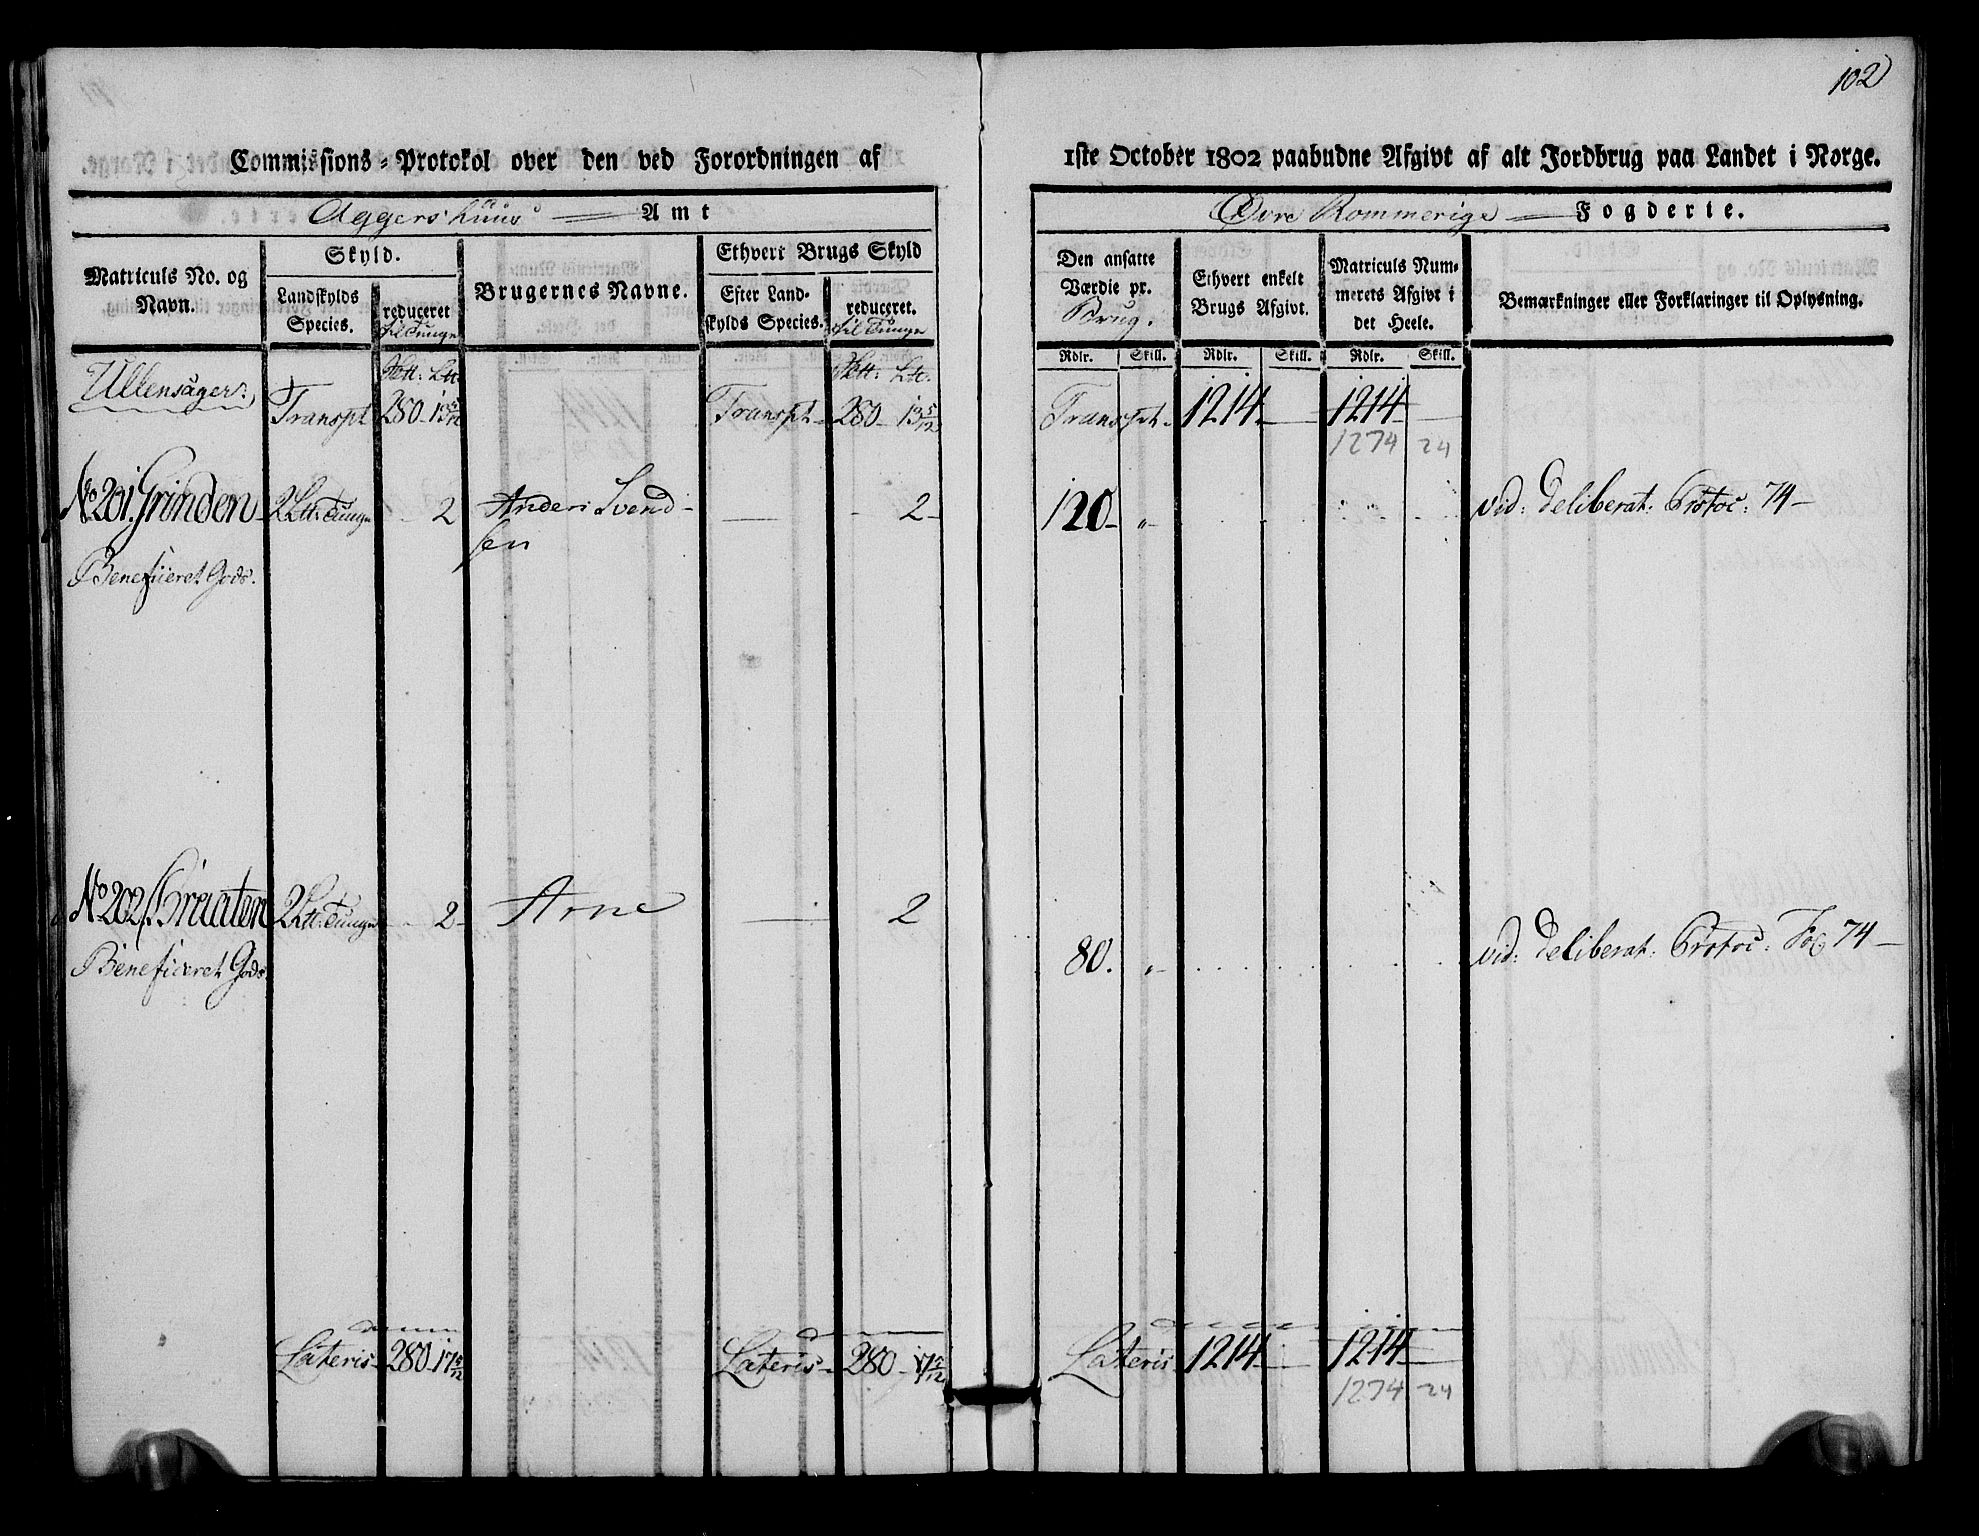 102
Commissions-Protokol over den ved Forordningen af 1ste October 1802 paabudne Afgivt af alt Jordbrug paa Landet i Norge.
Aggershuus Amt
Øvre Rommerige Fogderie.
Matriculs No. og Navn.
Skyld.
Landskylds Species.
reduceret til Tunge
Brugernes Navne.
Ethvert Brugs Skyld
Efter Landskylds Species.
reduceret. til Tunge
Den ansatte Værdie pr. Brug.
Ethvert enkelt Brugs Afgivt.
Matriculs Nummerets Afgivt i det Heele.
Bemærkninger eller Forklaringer til Oplysning.
Rdlr. Skill. Rdlr. Skill. Rdlr. Skill.
Ullensager:
Transpt 280 - 13 5/12 Transpt - 280 - 13 5/12 Transpt - 1214 - 1214 -
1274 24
No 201. Grinden 2 Ltt: Tunge - 2 Anders Svend- — - 2 - 120 - „ - vid: Deliberat: Protoc: 74 -
sen
Beneficeret Gods.
No 202. Braaten 2 Ltt: Tunge - 2 - Arne — 2
80. „ - vid: Deliberat: Protoc: Fol 74 -
Beneficeret Gods
Lateris - 280 - 17 5/12 Lateris - 280 - 17 5/12 Lateris - 1214 - 1214 -
1274 24